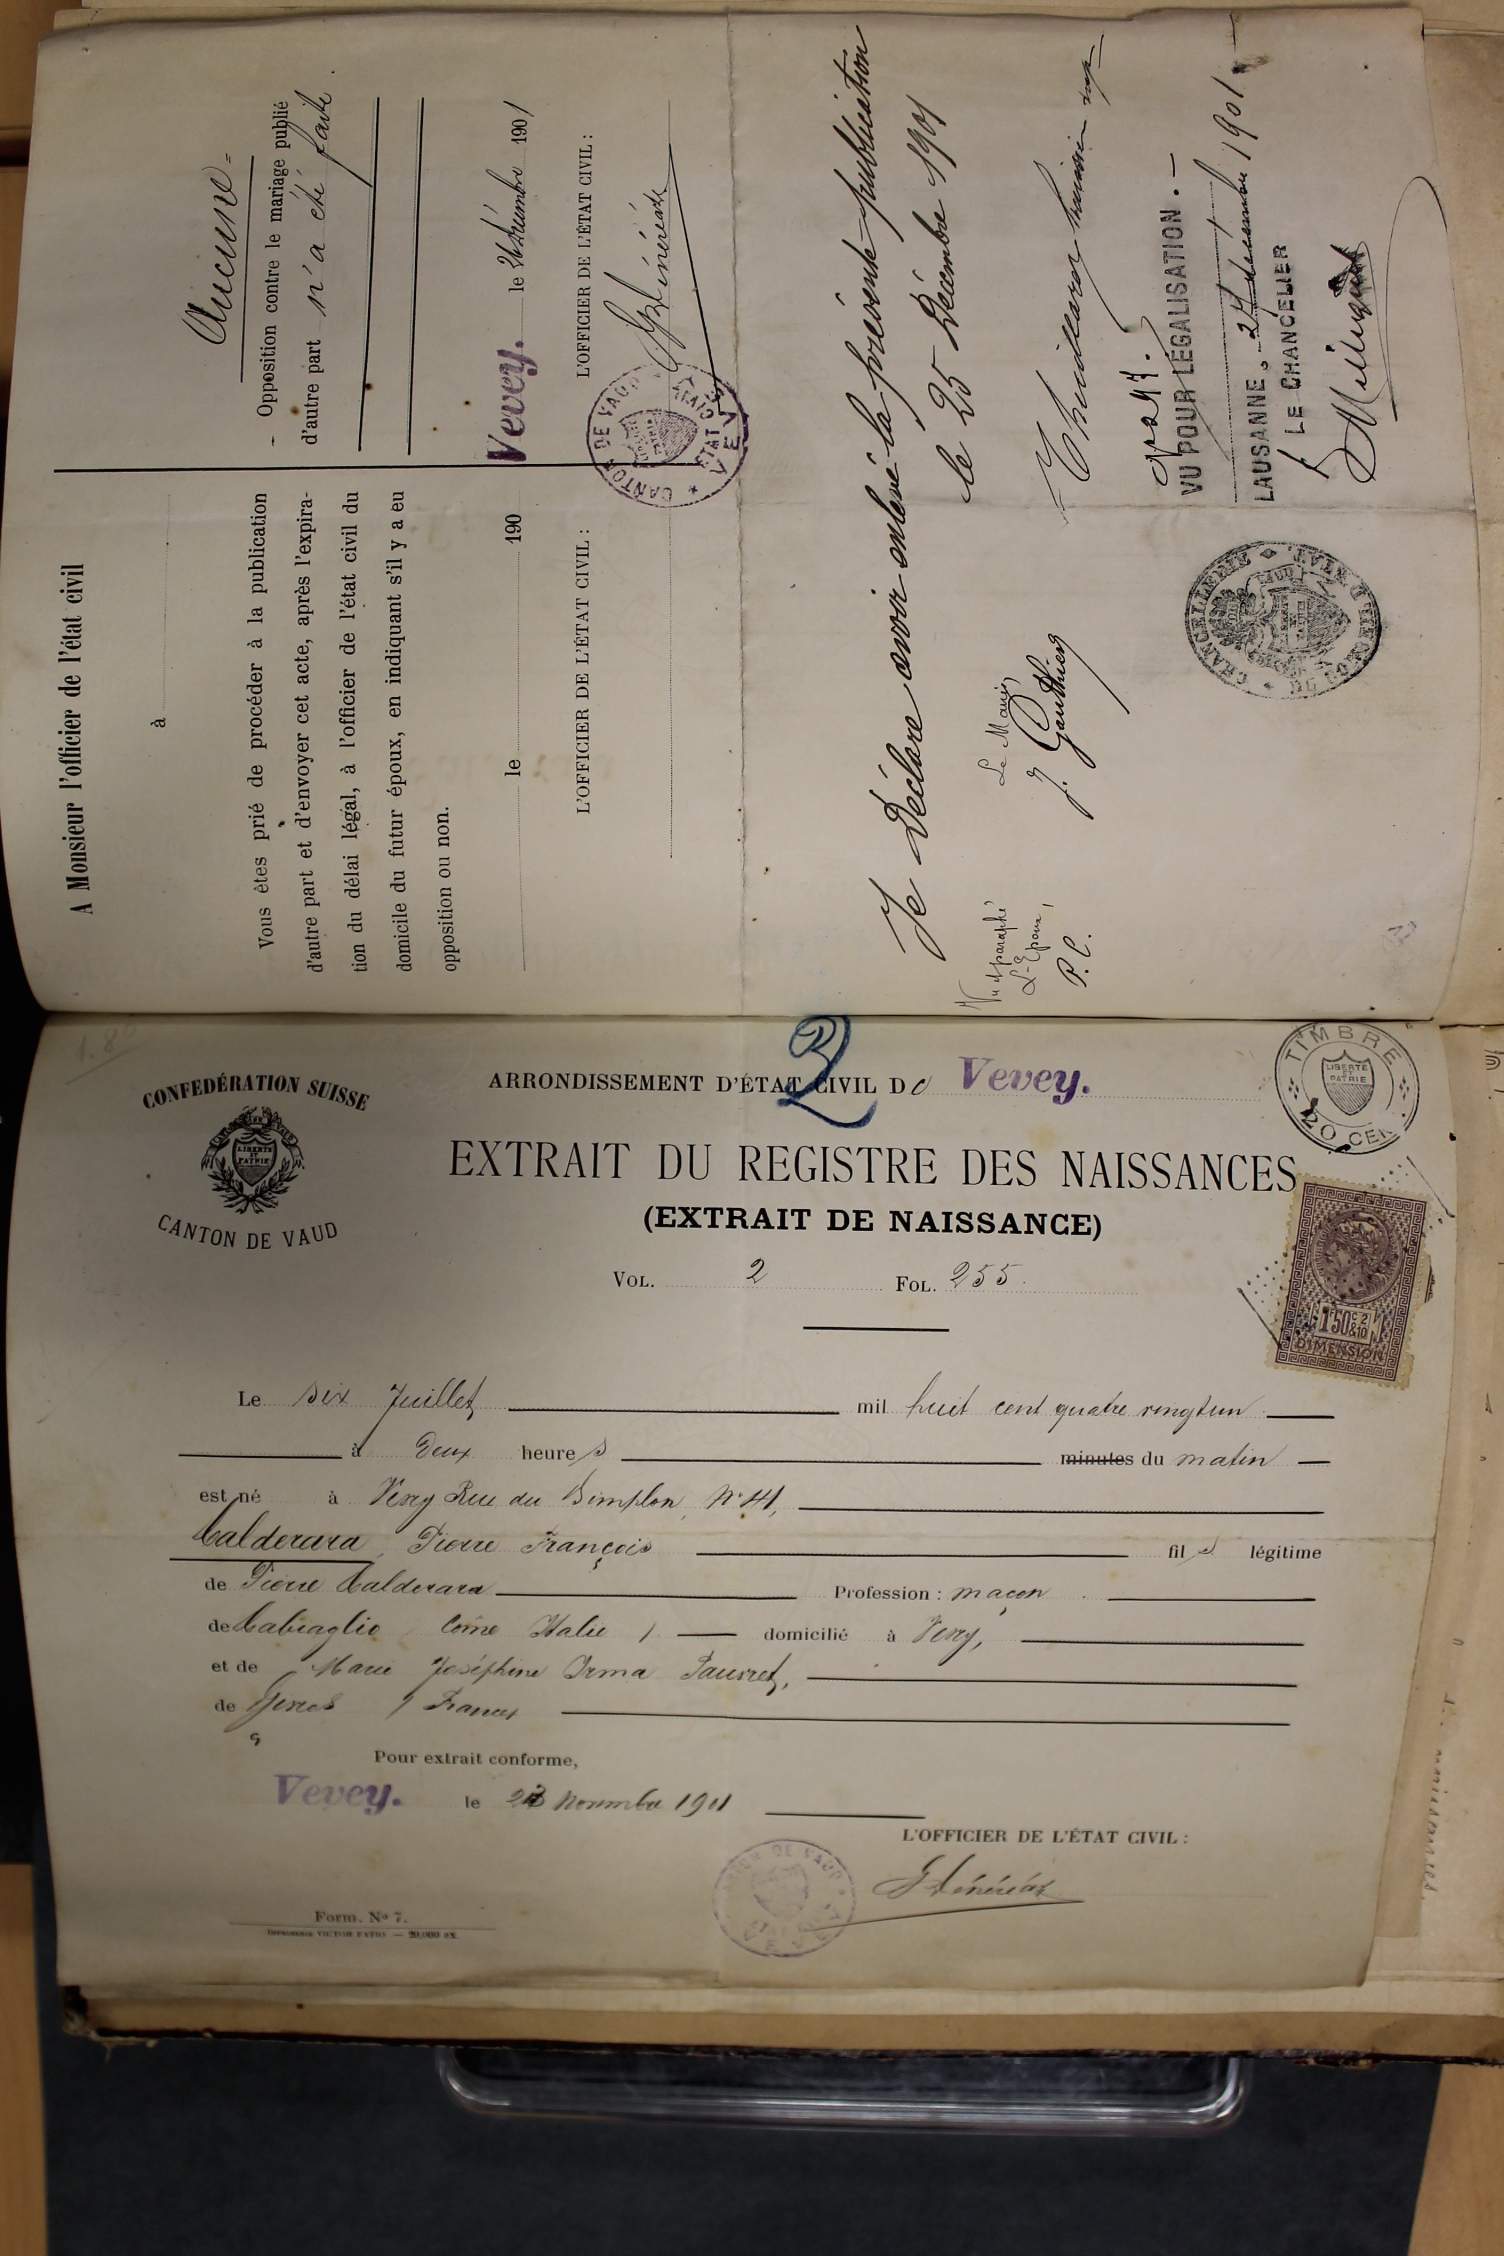 A Monsieur l'officier de l'état civil
à
Vous êtes prié de procéder à la publication
d'autre part et d'envoyer cet acte, après l'expira-
tion du délai légal, à l'officier de l'état civil du
domicile du futur époux, en indiquant s'il y a eu
opposition ou non.
le 190
L'OFFICIER DE L'ÉTAT CIVIL :
Aucune
- Opposition contre le mariage publié
d'autre part n'a été faite.
Vevey. le 26 décembre 1901
L'OFFICIER DE L'ÉTAT CIVIL :
CANTON DE VAUD
Je Déclare avoir enlevé la présente publication
le 25 Décembre 1901
huissier
Le Maire,
J. Gauthier
L'Epoux,
P. C.
VU POUR LÉGALISATION.
LAUSANNE, 27 décembre 1901
LE CHANCELIER
CHANCELLERIE
1.8
2
CONFEDÉRATION SUISSE
LIBERTÉ ET PATRIE
CANTON DE VAUD
ARRONDISSEMENT D'ÉTAT CIVIL De Vevey.
TIMBRE
LIBERTÉ ET PATRIE
20 CEN
EXTRAIT DU REGISTRE DES NAISSANCES
(EXTRAIT DE NAISSANCE)
VOL. 2 FOL. 255.
1F50C 2 &10
DIMENSION
Le six Juillet mil huit cent quatre vingt un
à Deux heures minutes du matin
est né à Vevey Rue du Simplon, No 41,
Calderara, Pierre François fils légitime
de Pierre Calderara Profession : maçon
de Cabiaglio Come Italie domicilié à Vevey,
et de Marie Joséphine Irma
de France
Pour extrait conforme,
Vevey. le novembre 1901
L'OFFICIER DE L'ÉTAT CIVIL :
Form. No 7.
IMPRIMERIE VICTOR FATIO — 20,000 EX.